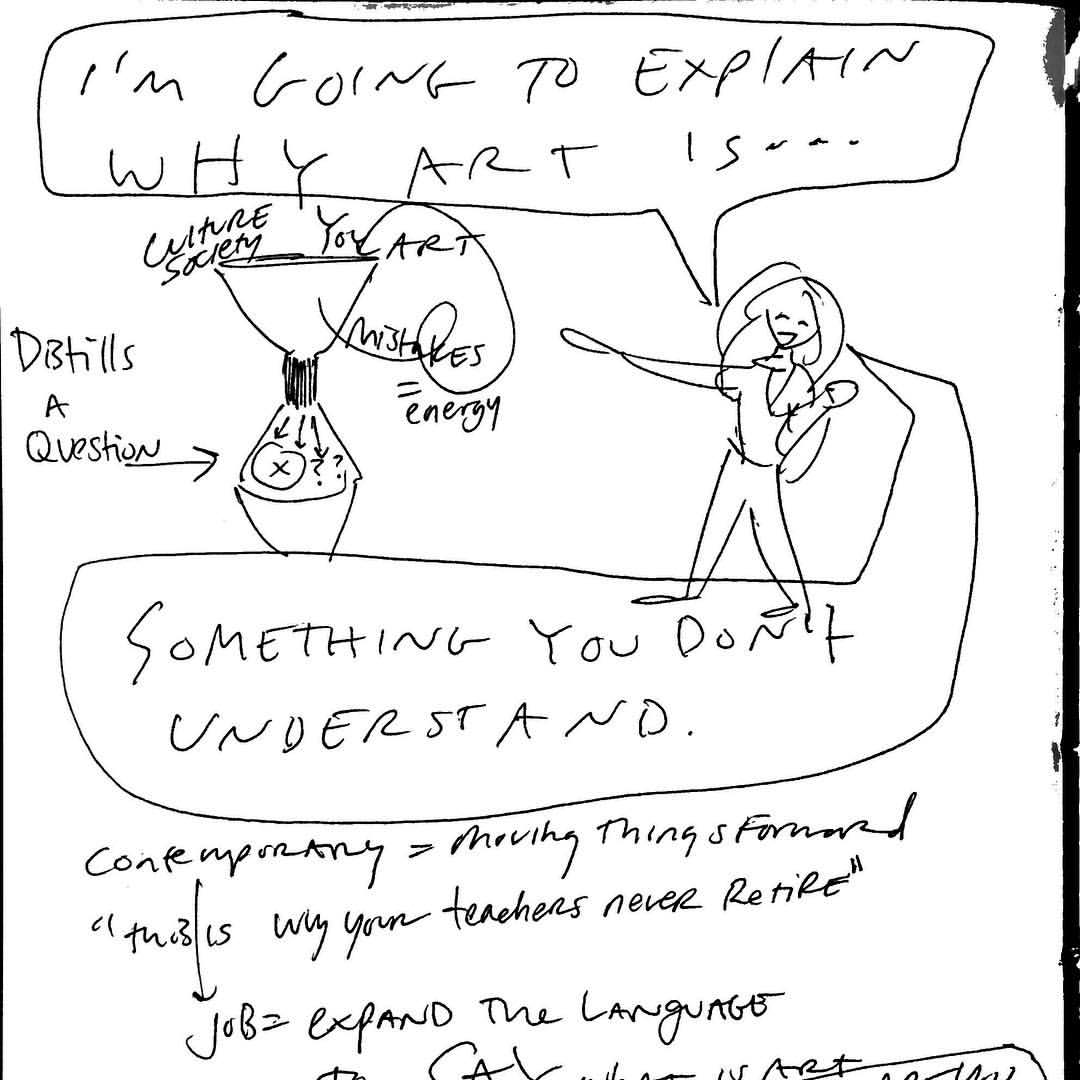 I'M GOING TO EXPLAIN
WHY ART IS....
CULTURE
SOCIETY
YOU
ART
MISTAKES
= energy
Distills
A
Question
x ? ?
SOMETHING YOU DON'T
UNDERSTAND.
Contemporary = moving things Forward
"this is why your teachers never Retire"
JOB = EXPAND The LANGUAGE
to SAY what is ART